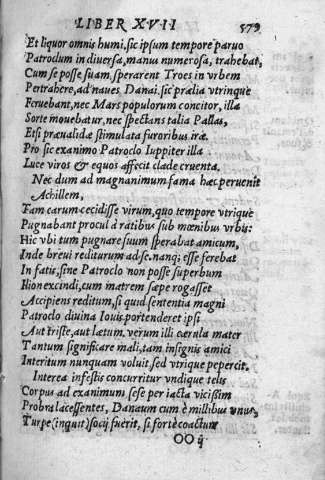 LIBER XVII 579
Et liquor omnis humi, sic ipsum tempore paruo
Patroclum in diuersa, manus numerosa, trahebat,
Cum se posse suam, sperarent Troes in vrbem
Pertrahere, ad naues Danai. sic prælia vtrinque
Feruebant, nec Mars populorum concitor, illa
Sorte mouebatur, nec spectans talia Pallas,
Etsi præualidæ stimulata furoribus iræ.
Pro sic exanimo Patroclo Iuppiter illa
Luce viros & equos affecit clade cruenta.
Nec dum ad magnanimum fama hæc peruenit
Achillem,
Tam carum cecidisse virum, quo tempore vtrique
Pugnabant procul à ratibus sub mœnibus vrbis:
Hic vbi tum pugnare suum sperabat amicum,
Inde breui rediturum ad se. nanq; esse ferebat
In fatis, sine Patroclo non posse superbum
Ilion excindi, cum matrem sæpe rogasset
Accipiens reditum, si quid sententia magni
Patroclo diuina Iouis portenderet ipsi
Aut triste, aut lætum. verum illi cærula mater
Tantum significare mali, tam insignis amici
Interitum nunquam voluit, sed vtrique pepercit.
Interea infestis concurritur vndique telis
Corpus ad exanimum sese per iacta vicissim
Probra lacessentes, Danaum cum è millibus vnus,
Turpe (inquit) socij fuerit, si forte coactum
OO ij